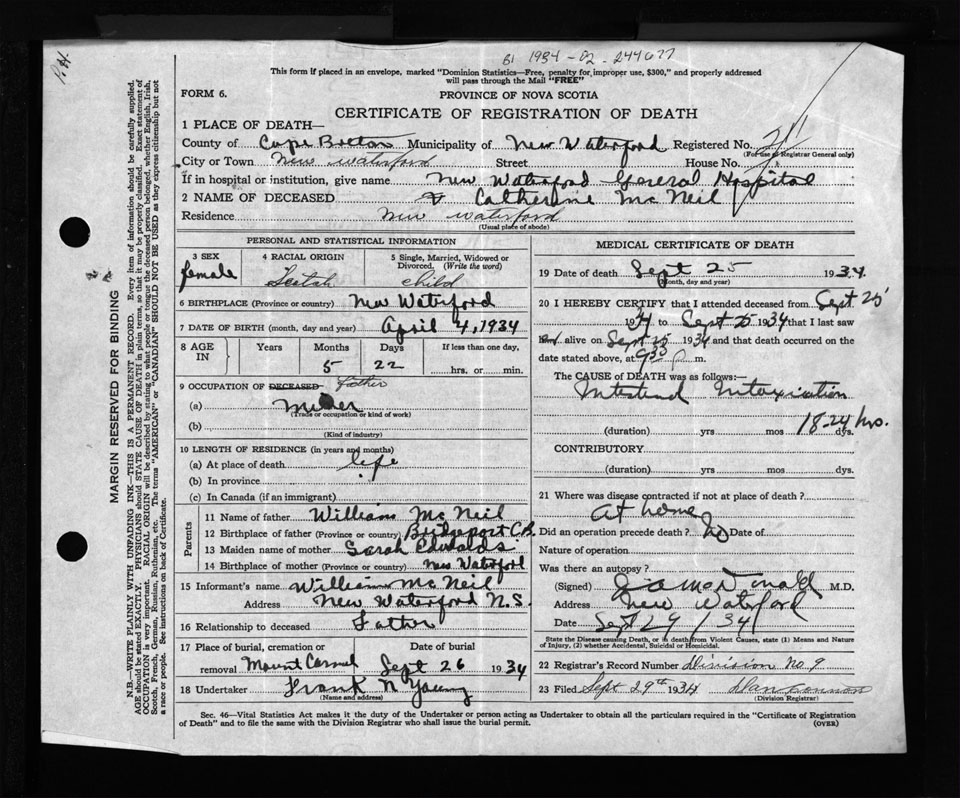 P.H.
B1 1934-02-244677
This form if placed in an envelope, marked "Dominion Statistics—Free, penalty for improper use, $300," and properly addressed
will pass through the Mail "FREE"
FORM 6. PROVINCE OF NOVA SCOTIA
CERTIFICATE OF REGISTRATION OF DEATH
1 PLACE OF DEATH—
County of Cape Breton Municipality of New Waterford Registered No.
(For use of Registrar General only)
City or Town New Waterford Street House No.
If in hospital or institution, give name New Waterford General Hospital
2 NAME OF DECEASED Catherine McNeil
Residence New Waterford
(Usual place of abode)
PERSONAL AND STATISTICAL INFORMATION
3 SEX 4 RACIAL ORIGIN 5 Single, Married, Widowed or
Divorced. (Write the word)
female Scotch child
6 BIRTHPLACE (Province or country) New Waterford
7 DATE OF BIRTH (month, day and year) April 4, 1934
8 AGE IN Years Months Days If less than one day,
5 22 hrs. or min.
9 OCCUPATION OF DECEASED Father
(a) Miner
(Trade or occupation or kind of work)
(b)
(Kind of industry)
10 LENGTH OF RESIDENCE (in years and months)
(a) At place of death life
(b) In province
(c) In Canada (if an immigrant)
Parents
11 Name of father William McNeil
12 Birthplace of father (Province or country) Bridgeport C.B.
13 Maiden name of mother Sarah Edwards
14 Birthplace of mother (Province or country) New Waterford
15 Informant's name William McNeil
Address New Waterford N.S.
16 Relationship to deceased Father
17 Place of burial, cremation or Date of burial
removal Mount Carmel Sept 26 1934
18 Undertaker Frank N Young
(Name and address)
MEDICAL CERTIFICATE OF DEATH
19 Date of death Sept 25 1934.
(Month, day and year)
20 I HEREBY CERTIFY that I attended deceased from Sept 25
1934 to Sept 25 1934 that I last saw
alive on Sept 25 1934 and that death occurred on the
date stated above, at 930 P m.
The CAUSE OF DEATH was as follows:
Intestinal Intoxication
18-24 hrs.
(duration) yrs mos dys.
CONTRIBUTORY
(duration) yrs mos dys.
21 Where was disease contracted if not at place of death?
At home
Did an operation precede death? No Date of
Nature of operation
Was there an autopsy?
(Signed) M.D.
Address New Waterford
Date Sept 29/34
State the Disease causing Death, or in death from Violent Causes, state (1) Means and Nature
of Injury, (2) whether Accidental, Suicidal or Homicidal.
22 Registrar's Record Number Division No. 9
23 Filed Sept 29th 1934 Dan
(Division Registrar)
Sec. 46—Vital Statistics Act makes it the duty of the Undertaker or person acting as Undertaker to obtain all the particulars required in the "Certificate of Registration
of Death" and to file the same with the Division Registrar who shall issue the burial permit. (OVER)
MARGIN RESERVED FOR BINDING
N.B.—WRITE PLAINLY WITH UNFADING INK—THIS IS A PERMANENT RECORD. Every item of information should be carefully supplied.
AGE should be stated EXACTLY. PHYSICIANS should STATE CAUSE OF DEATH in plain terms, so that it may be properly classified. Exact statement of
OCCUPATION is very important. RACIAL ORIGIN will be described by stating to what people or tongue the deceased person belonged, whether English, Irish,
Scotch, French, German, Russian, Ruthenian, etc. The terms "AMERICAN" or "CANADIAN" SHOULD NOT BE USED as they express citizenship but not
a race or people. See instructions on back of Certificate.